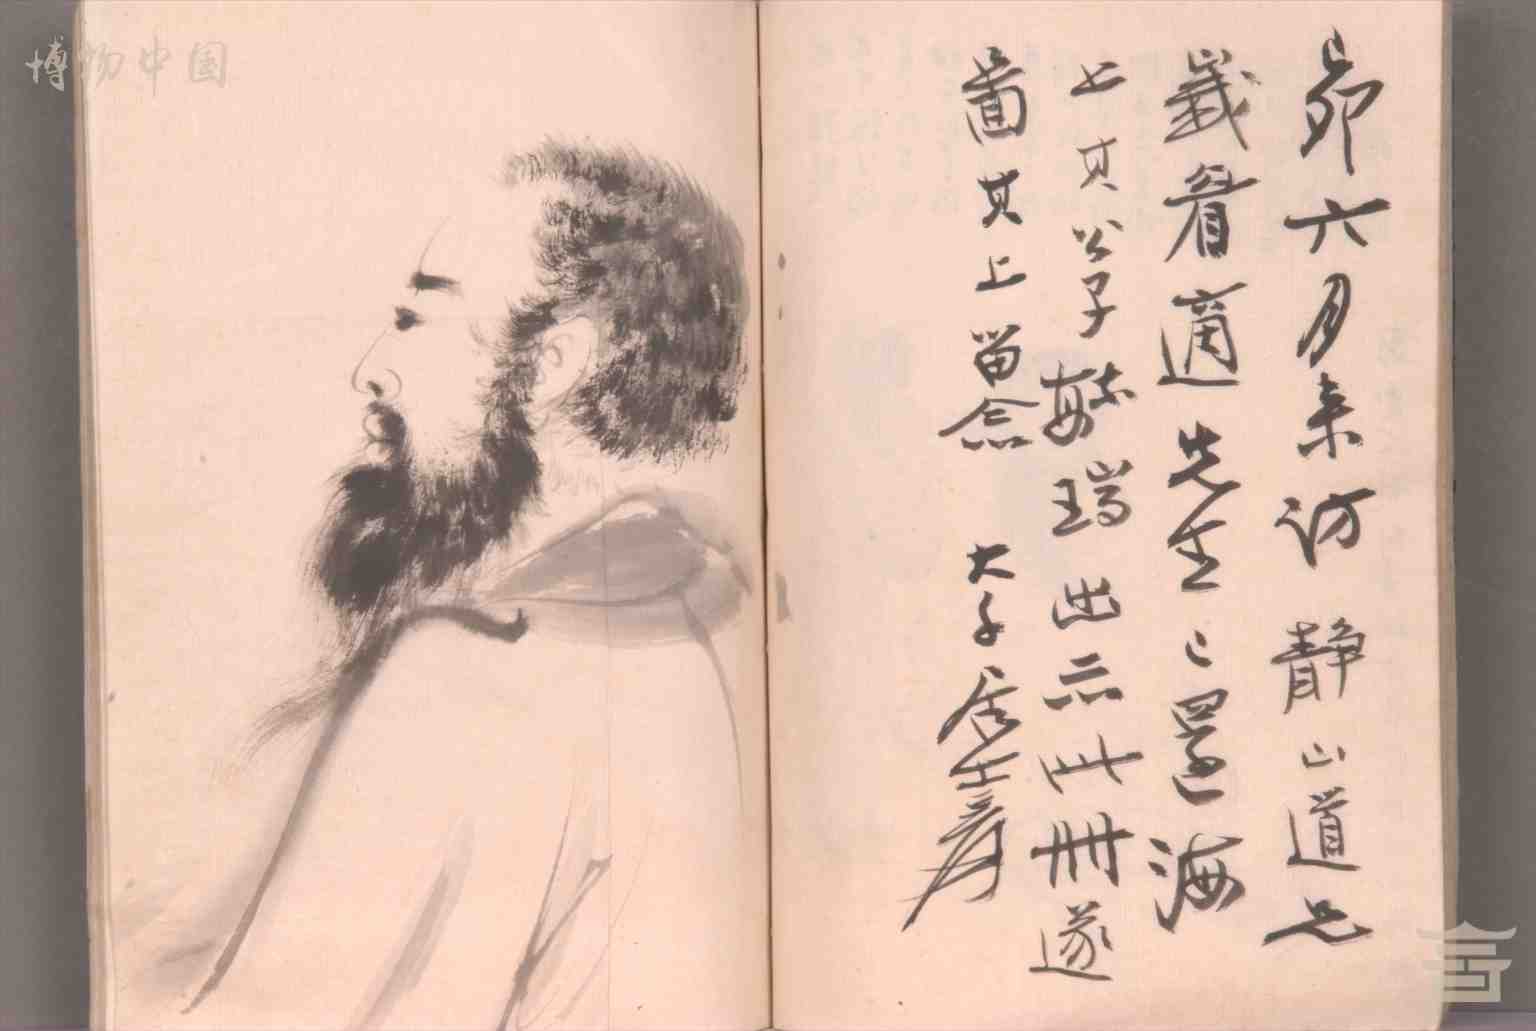 卯六月来访静山道兄
岁看适先生之还海
上其公子毓瑞出示此册遂
图其上留念
大千居士爰
博物中国